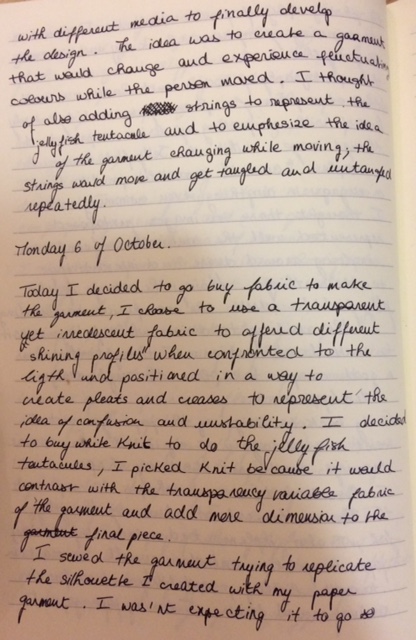 with different media to finally develop
the design. The idea was to create a garment
that would change and experience fluctuation
colours while the person moved. I thought
of also adding strings to represent the
jellyfish tentacule and to emphesize the idea
of the garment changing while moving; the
strings would move and get tangled and untangled
repeatedly.
Monday 6 of October.
Today I decided to go buy fabric to make
the garment, I choose to use a transparent
yet irredescent fabric to offered different
"shining profiles" when confronted to the
ligth and positioned in a way to
create pleats and creases to represent the
idea of confusion and unstability. I decided
to buy white Knit to do the jelly fish
tentacules, I picked Knit because it would
contrast with the transparency variable fabric
of the garment and add more dimension to the
garment final piece.
I sewed the garment trying to replicate
the silhouette I created with my paper
garment. I was'nt expecting it to go so